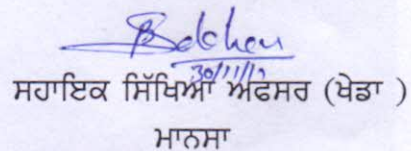 30/11/17
ਸਹਾਇਕ ਸਿੱਖਿਆ ਅਫਸਰ (ਖੇਡਾ )
ਮਾਨਸਾ